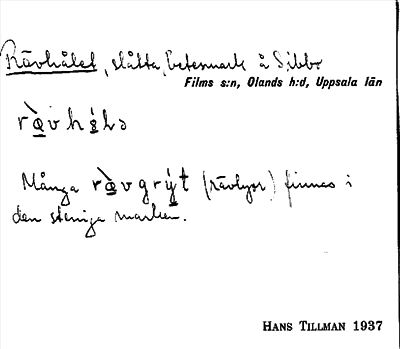 Rävhålet, slåtta, betesmark å Sibbo
Films s:n, Olands h:d, Uppsala län
Många (rävlyor) finnes i
den steniga marken.
HANS TILLMAN 1937